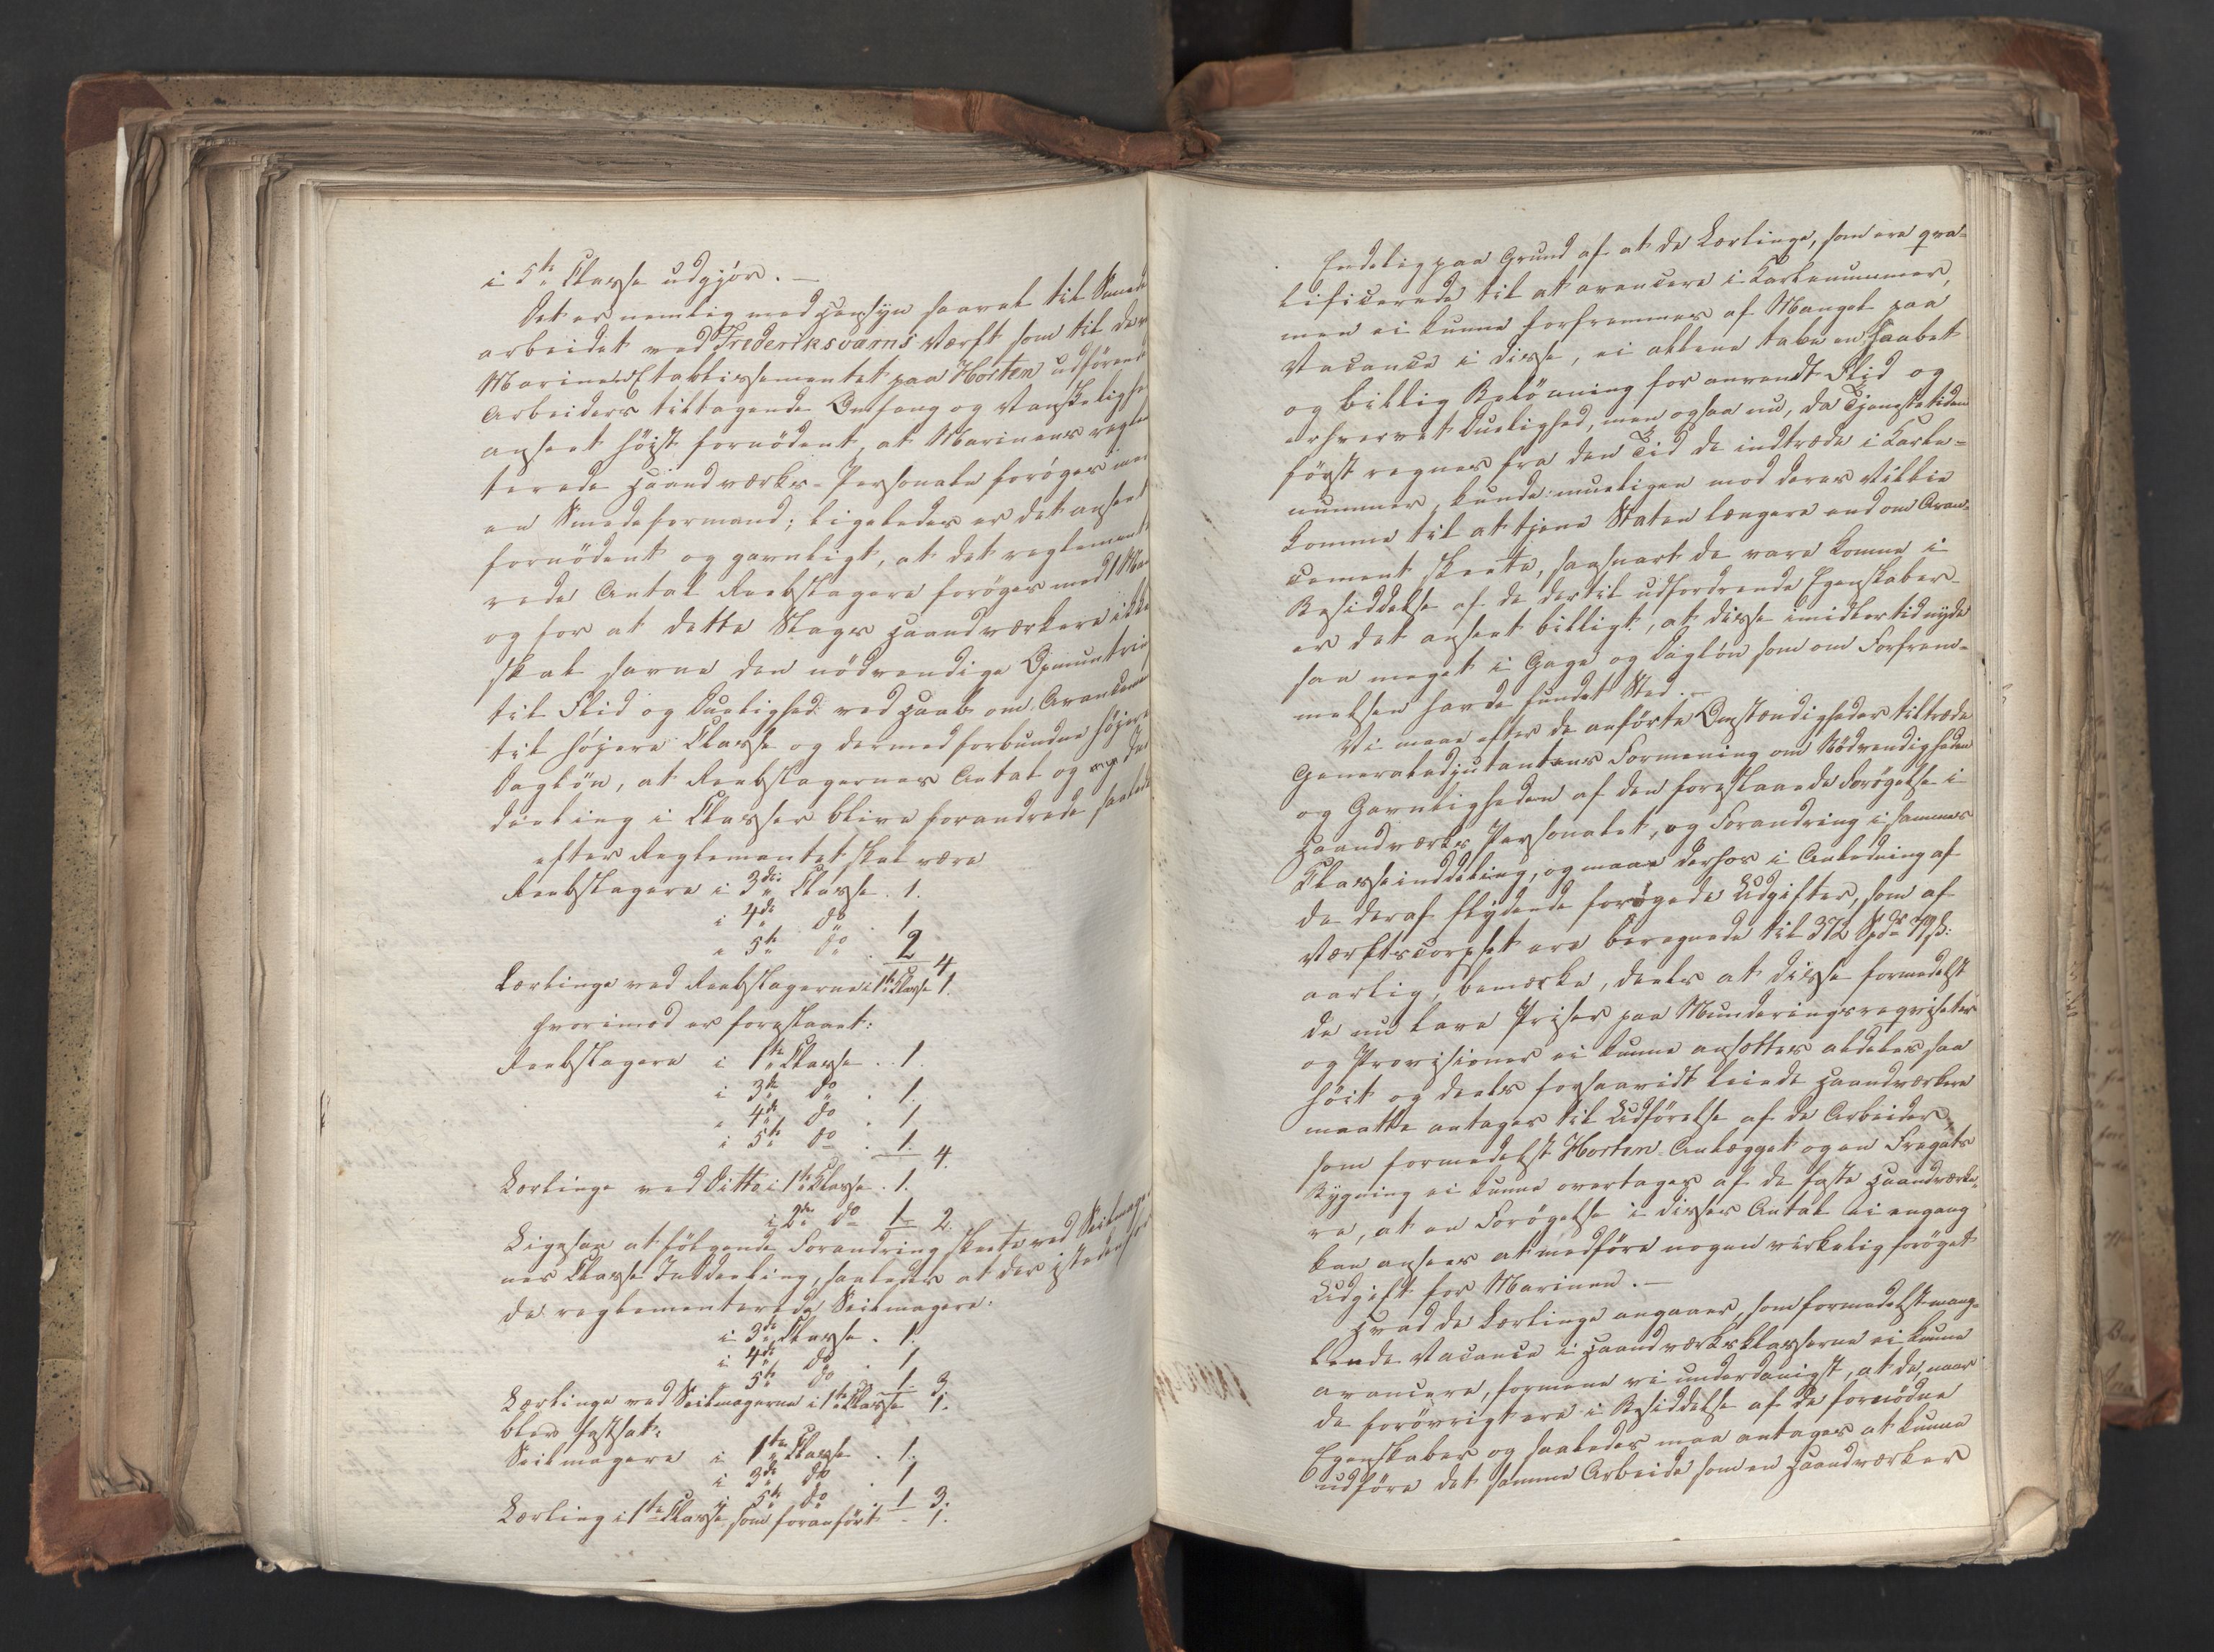 i 5te Classe udgjør. —
Det er nemlig med Hensyn saavel til Smede
arbeidet ved Frederiksværns Værft som til de ved
Marine-Etablissementet paa Horten udførende
Arbeiders tiltagende Omfang og Vanskelighed
anseet höist fornödent, at Marinens regle
terede Haandværks-Personale forøges med
en Smedeformand; ligeledes er det anseet
fornödent og gavnligt, at det reglemente
rede Antal Reebslagere forøges med 1 Mand
og for at dette Slags Haandværkere ikke
skal savne den nödvendige Opmuntring
til Flid og Duelighed ved Haab om Avancement
til høiere Classe og dermed forbundne høiere
Daglön, at Reebslagernes Antal og
deeling i Classer blive forandrede saaledes
efter Reglementet skal være
Reebslagere i 3die Classe . 1.
i 4de do . 1
" 5te do . 2 4
Lærlinge ved Reebslagerne i 1te Classe 1.
hvorimod er foreslaaet:
Reebslagere i 1te Classe . 1.
i 3die do . 1.
" 4de do . 1
i 5te do . 1. 4.
Lærlinge ved Ditto i 1te Classe . 1.
i 2den do 1 2.
Ligesaa at følgende Forandring skeete ved Seilmager
nes Classe Inddeeling, saaledes at der istedenfor
de reglementerede Seilmagere:
i 3die Classe . 1.
i 4de do . 1
" 5te do . 1. 3.
Lærlinge ved Seilmagerne i 1te Classe 1.
blev fastsat:
Seilmagere i 1te Classe . 1.
i 3die do . 1
i 5te do . 1 3.
Lærling i 1te Classe, som foranfört - 1.
Endelig paa Grund af at de Lærlinge, som ere qva-
lificerede til at avancere i Karlenummer,
men ei kunne forfremmes af Mangel paa
Vacance i disse, ei allene tabe en Haabet
og billig Belönning for anvendt Flid og
erhvervet Duelighed, men ogsaa nu, da Tjenestetiden
först regnes fra den Tid de indtræde i Karle-
nummer, kunde mueligen mod deres Villie
komme til at tjene Staten længere end om Avan-
cement skeete, saasnart de vare komne i
Besiddelse af de dertil udfordrende Egenskaber
er det anseet billigt, at disse imidlertid nyde
saa meget i Gage og Daglön som om Forfrem-
melsen havde fundet Sted. —
Vi maae efter de anførte Omstændigheder tiltræde
Generaladjutantens Formening om Nödvendigheden
og Gavnligheden af den foreslaaede Forøgelse i
Haandværks Personalet, og Forandring i sammes
Klasseinddeling, og maae derhos i Anledning af
de deraf flydende forøgede Udgifter, som af
Værftscorpset ere beregnede til 372 Spdr 79 ß:
aarlig, bemærke, deels at disse formedelst
de nu lave Priser paa Munderingsreqvisiter
og Provisioner ei kunne ansættes aldeles saa
höit og deels forsaavidt leiede Haandværkere
maatte antages til Udførelse af de Arbeider,
som formedelst Horten Anlægget og en Fregats
Bygning ei kunne overtages af de faste Haandværke-
re, at en Forøgelse i disses Antal ei engang
kan ansees at medföre nogen virkelig forøget
Udgift for Marinen. —
Hvad de Lærlinge angaaer, som formedelst mang-
lende Vacance i Haandværksklasserne ei kunne
avancere, formene vi underdanigst, at de, naar
de forövrigt ere i Besiddelse af de fornödne
Egenskaber og saaledes maa antages at kunne
udføre det samme Arbeide som en Haandværker